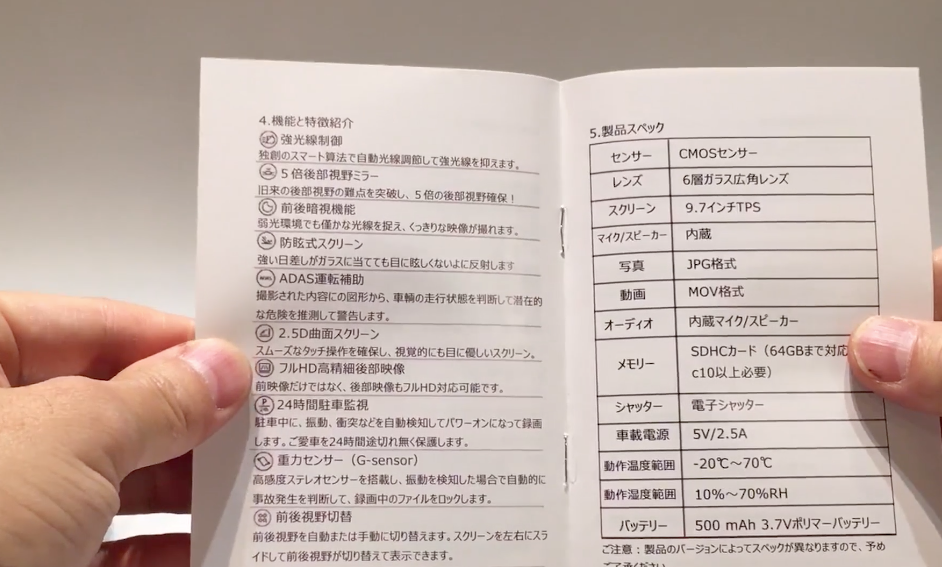 4.機能と特徴紹介
強光線制御
独創のスマート算法で自動光線調節して強光線を抑えます。
5倍後部視野ミラー
旧来の後部視野の難点を突破し、5倍の後部視野確保！
前後暗視機能
弱光環境でも僅かな光線を捉え、くっきりな映像が撮れます。
防眩式スクリーン
強い日差しがガラスに当てても目に眩しくないよに反射します
ADAS運転補助
撮影された内容にの図形から、車輌の走行状態を判断して潜在的
な危険を推測して警告します。
2.5D曲面スクリーン
スムーズなタッチ操作を確保し、視覚的にも目に優しいスクリーン。
フルHD高精細後部映像
前映像だけではなく、後部映像もフルHD対応可能です。
24時間駐車監視
駐車中に、振動、衝突などを自動検知してパワーオンになって録画
します。ご愛車を24時間途切れ無く保護します。
重力センサー（G-sensor）
高感度ステレオセンサーを搭載し、振動を検知した場合で自動的に
事故発生を判断して、録画中のファイルをロックします。
前後視野切替
前後視野を自動または手動に切り替えます。スクリーンを左右にスラ
イドして前後視野が切り替えて表示できます。
5.製品スペック
センサー CMOSセンサー
レンズ 6層ガラス広角レンズ
スクリーン 9.7インチTPS
マイク/スピーカー 内蔵
写真 JPG格式
動画 MOV格式
オーディオ 内蔵マイク/スピーカー
メモリー SDHCカード（64GBまで対応
c10以上必要）
シャッター 電子シャッター
車載電源 5V/2.5A
動作温度範囲 -20℃～70℃
動作湿度範囲 10%～70%RH
バッテリー 500 mAh 3.7Vポリマーバッテリー
ご注意：製品のバージョンによってスペックが異なりますので、予め